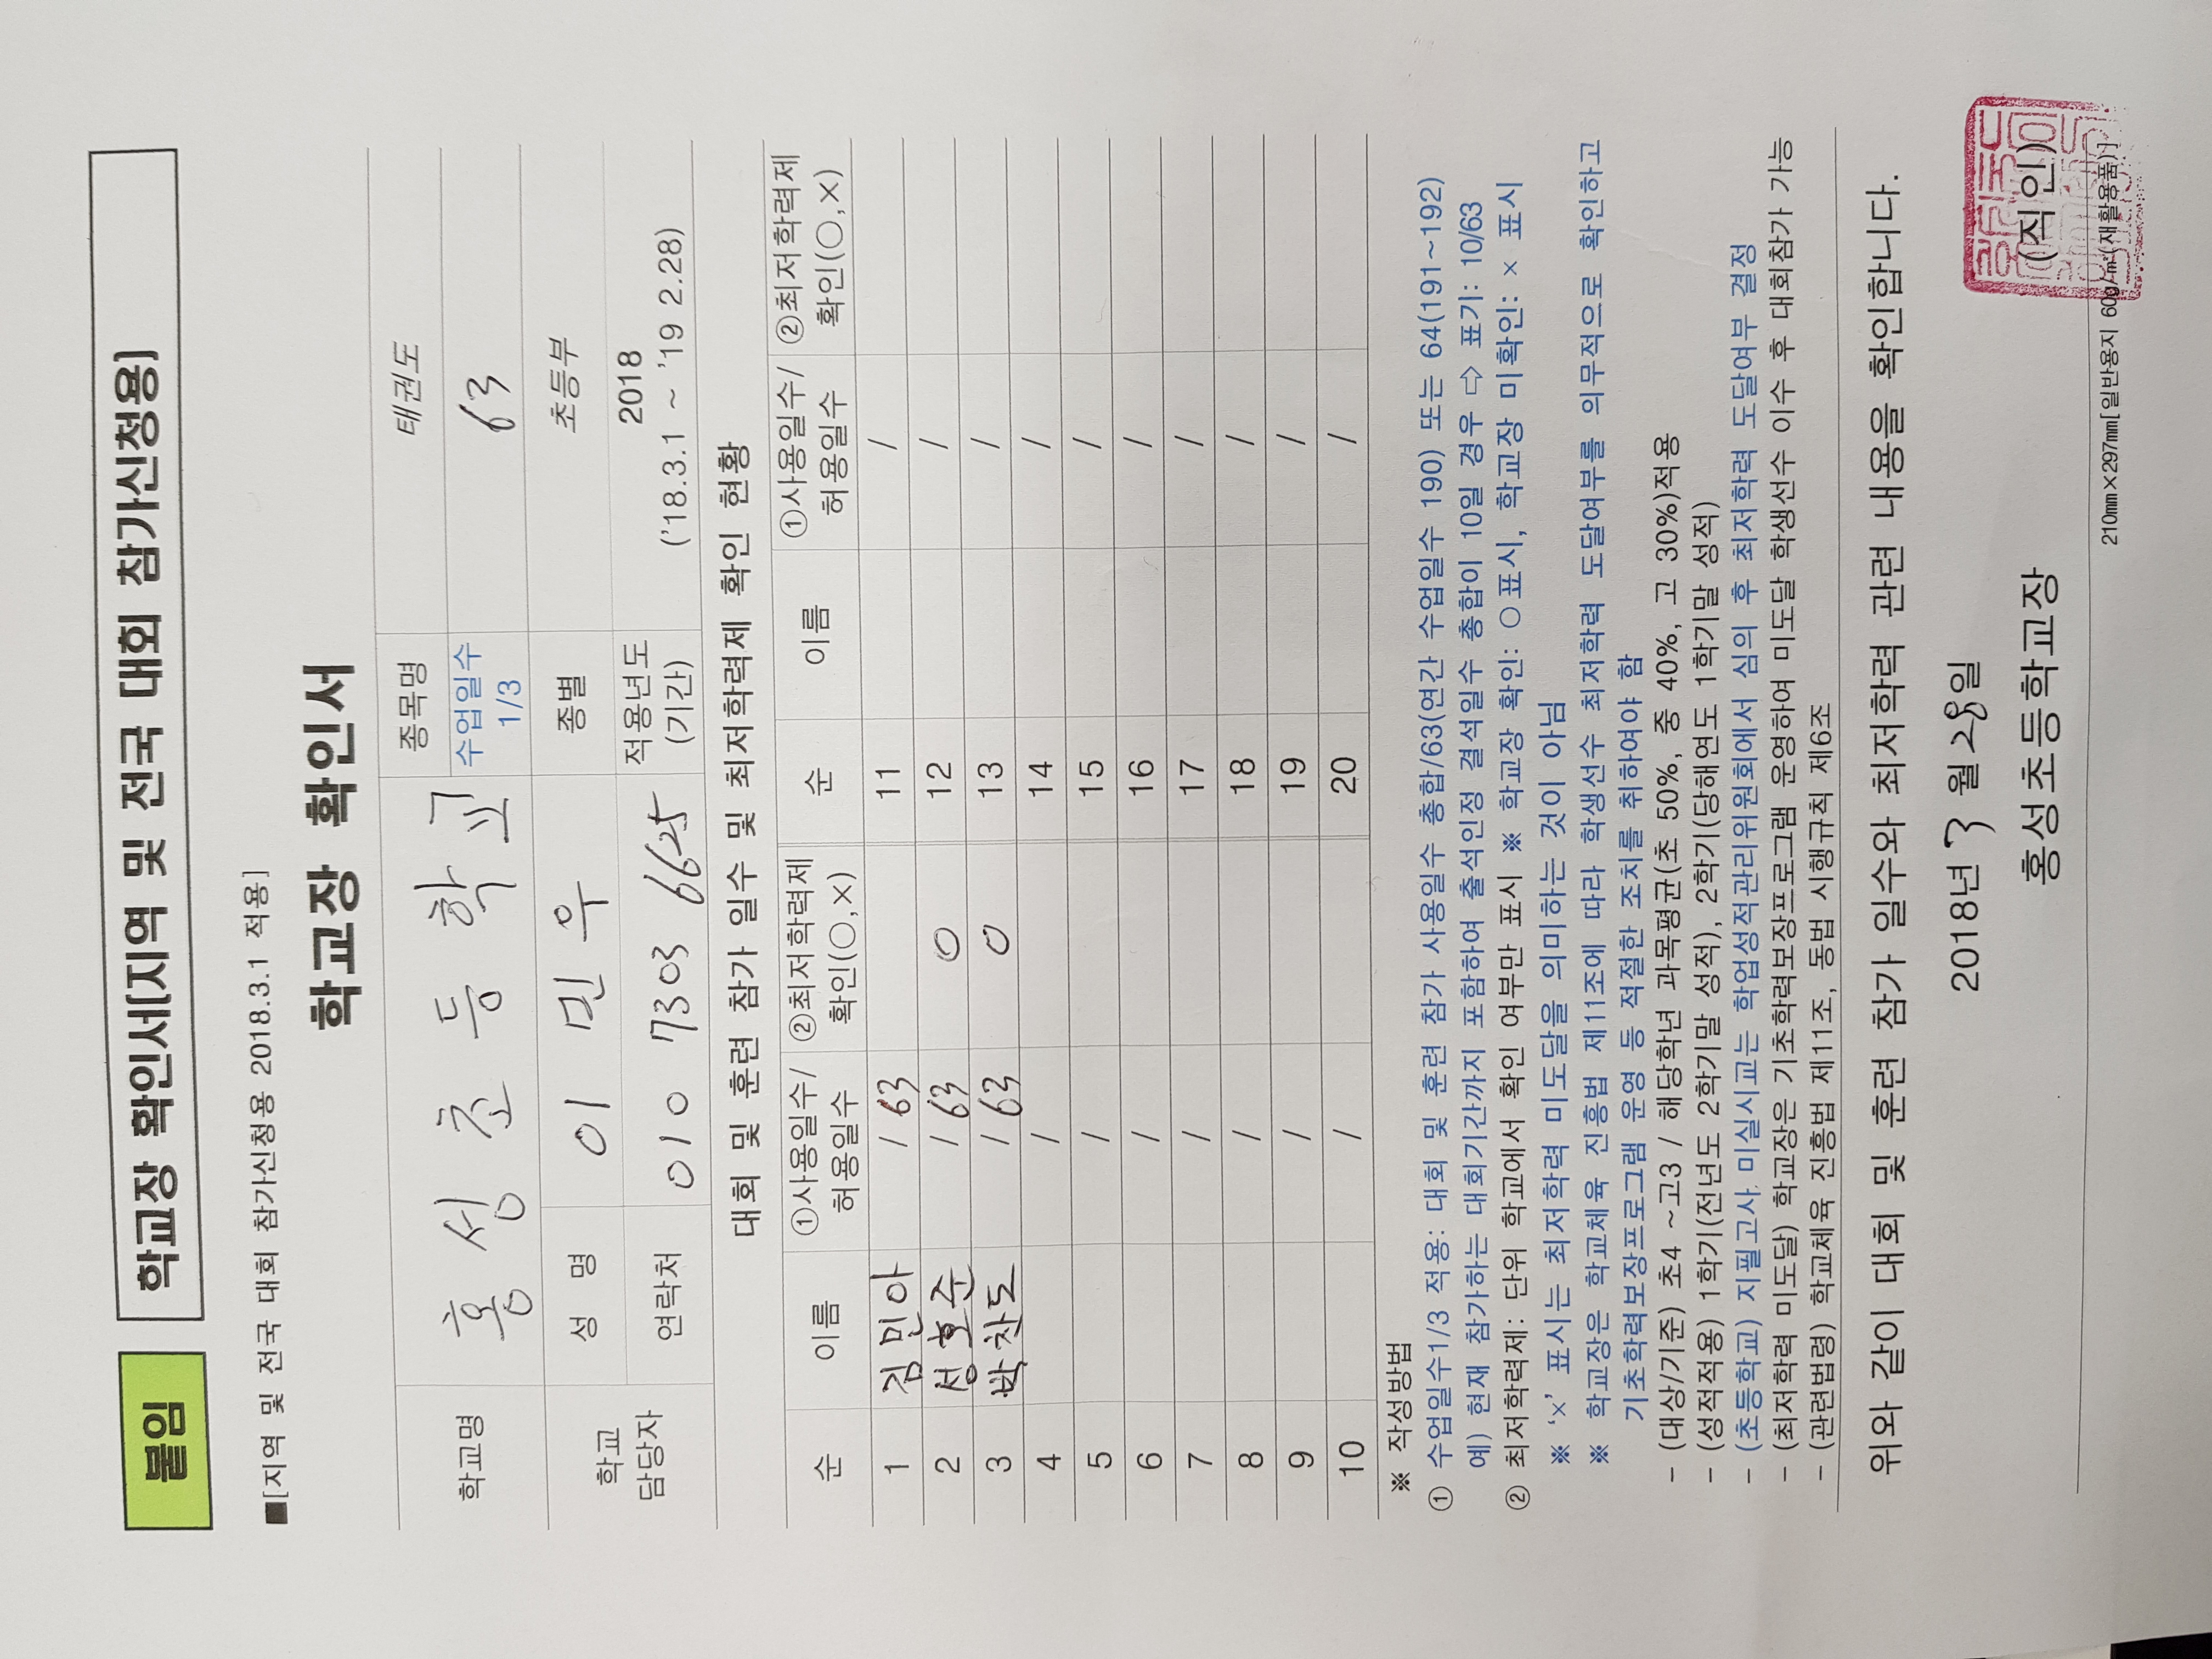 붙임 학교장 확인서[지역 및 전국 대회 참가신청용]
■[지역 및 전국 대회 참가신청용 2018.3.1 적용]
학교장 확인서
학교명 홍성초등학교 종목명 태권도
수업일수 1/3 63
학교 담당자 성 명 이민우 종별 초등부
연락처 010 7303 6625 적용년도 (기간) 2018 ('18.3.1 ~ '19 2.28)
대회 및 훈련 참가 일수 및 최저학력제 확인 현황
순 이름 ①사용일수/허용일수 ②최저학력제 확인(○,×) 순 이름 ①사용일수/허용일수 ②최저학력제 확인(○,×)
1 김민아 / 63 11 /
2 성호준 / 63 ○ 12 /
3 박찬도 / 63 ○ 13 /
4 / 14 /
5 / 15 /
6 / 16 /
7 / 17 /
8 / 18 /
9 / 19 /
10 / 20 /
※ 작성방법
① 수업일수1/3 적용: 대회 및 훈련 참가 사용일수 총합/63(연간 수업일수 190) 또는 64(191~192)
예) 현재 참가하는 대회기간까지 포함하여 출석인정 결석일수 총합이 10일 경우 ⇨ 표기: 10/63
② 최저학력제: 단위 학교에서 확인 여부만 표시 ※ 학교장 확인: ○ 표시, 학교장 미확인: × 표시
※ '×' 표시는 최저학력 미도달을 의미하는 것이 아님
※ 학교장은 학교체육 진흥법 제11조에 따라 학생선수 최저학력 도달여부를 의무적으로 확인하고
기초학력보장프로그램 운영 등 적절한 조치를 취하여야 함
- (대상/기준) 초4 ~고3 / 해당학년 과목평균(초 50%, 중 40%, 고 30%)적용
- (성적적용) 1학기(전년도 2학기말 성적), 2학기(당해연도 1학기말 성적)
- (초등학교) 지필고사 미실시교는 학업성적관리위원회에서 심의 후 최저학력 도달여부 결정
- (최저학력 미도달) 학교장은 기초학력보장프로그램 운영하여 미도달 학생선수 이수 후 대회참가 가능
- (관련법령) 학교체육 진흥법 제11조, 동법 시행규칙 제6조
위와 같이 대회 및 훈련 참가 일수와 최저학력 관련 내용을 확인합니다.
2018년 3월 28일
홍성초등학교장 (직인)
210㎜×297㎜[일반용지 60g/㎡(재활용품)]